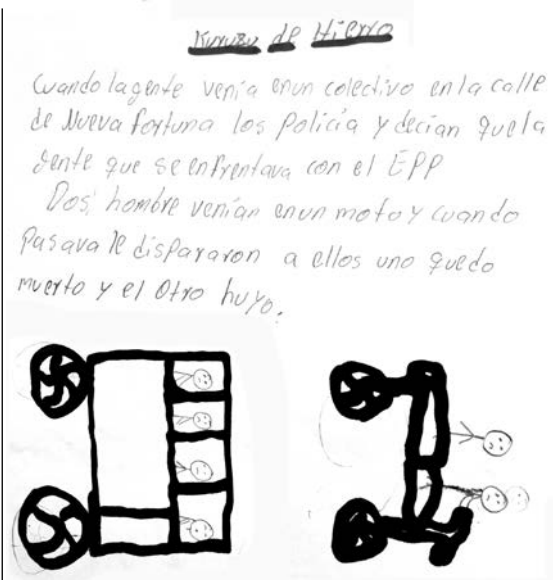 Kuruzu de Hierro
Cuando la gente venia enun colectivo en la calle
de Nueva fortuna los Policía y decian que la
gente que se enfrentava con el EPP
Dos hombre venian enun moto y cuando
Pasava le dispararon a ellos uno quedo
muerto y el Otro huyo.